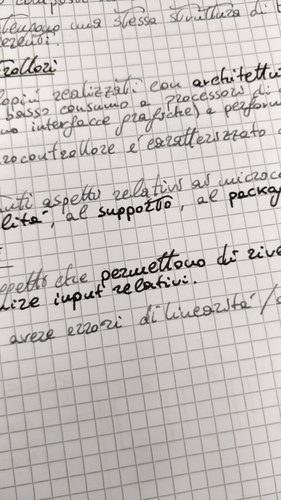 una stessa struttura di
rollori
realizzati con architettu
basso consumo a processori di
no interfacce grafiche) e perform
rocontrollore è caratterizzato
nti aspetti relativi ai microco
lità, al supporto, al packag
oggetto che permettono di rive
lize input relativi.
avere errori di linearità /